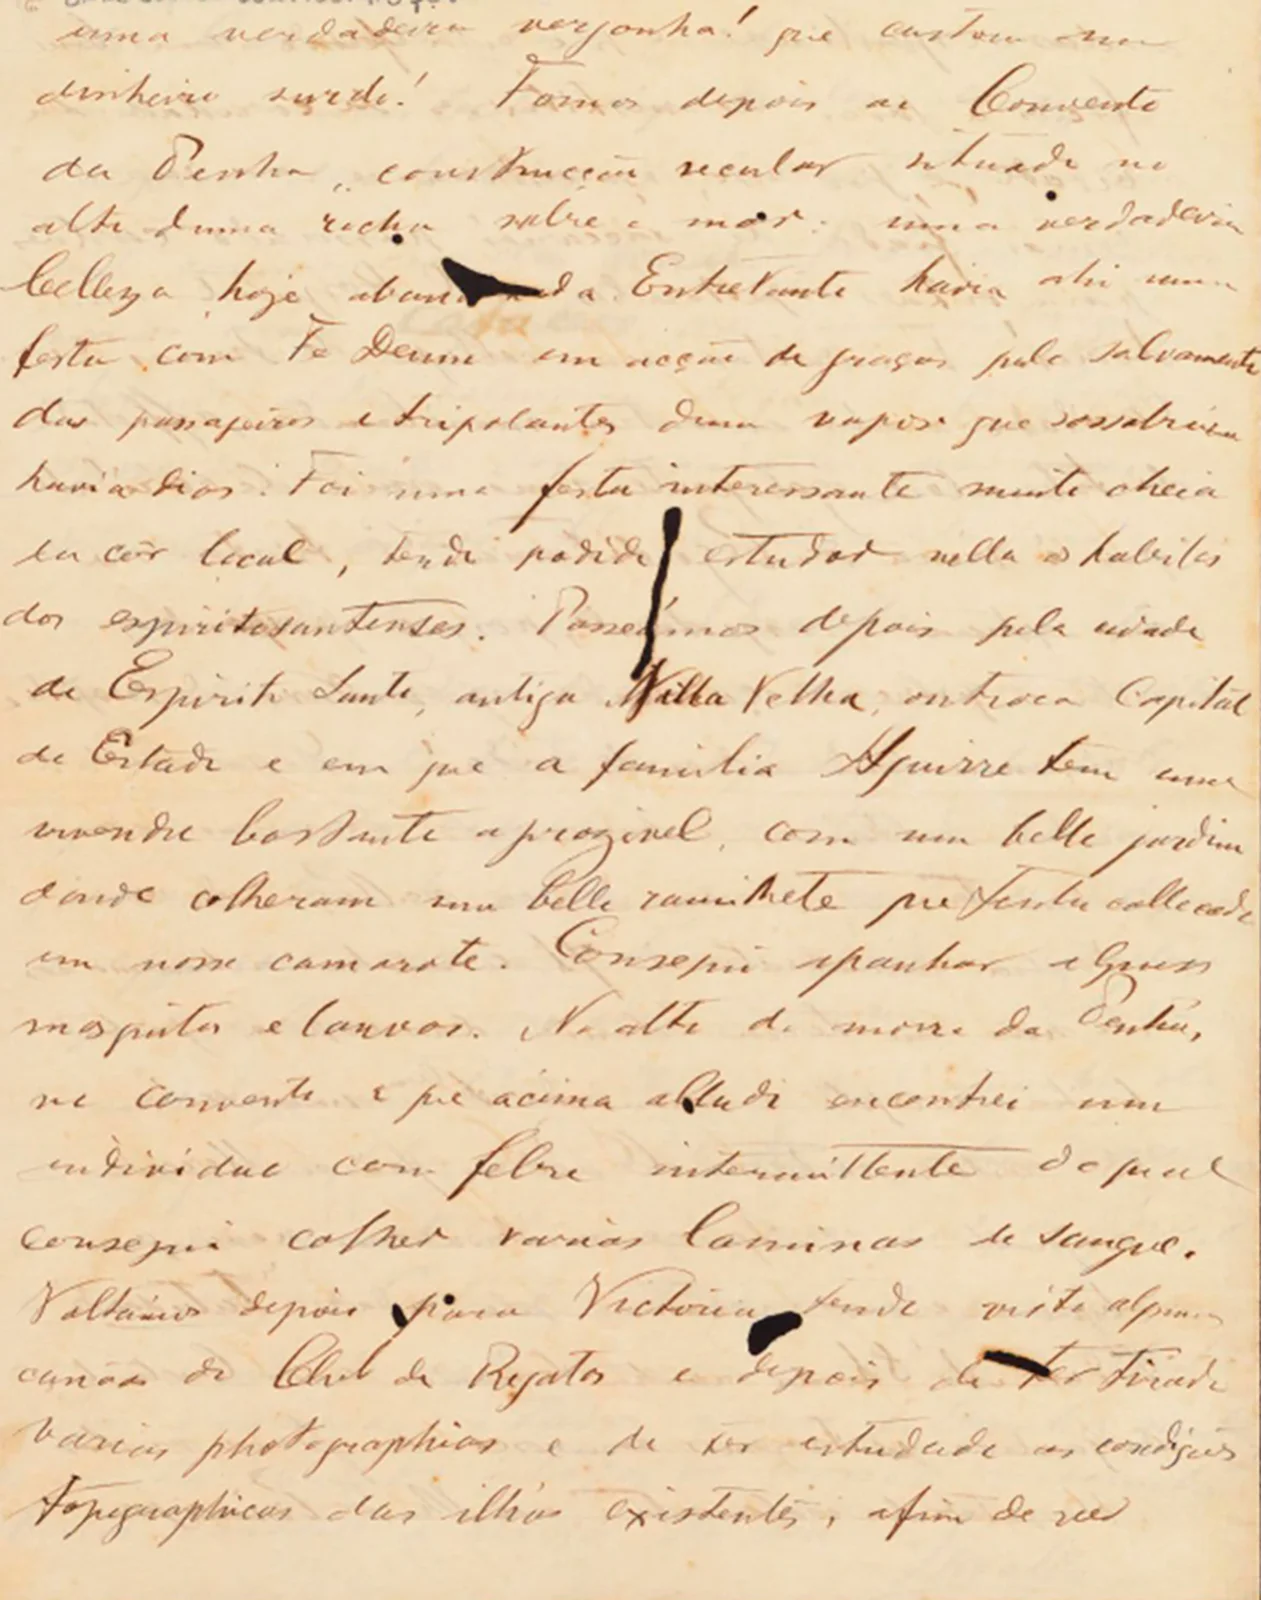 uma verdadeira vergonha! que custou um
dinheirão surdo! Fomos depois ao Convento
da Penha, construcção secular situada no
alto duma rocha sobre o mar: uma verdadeira
belleza hoje abandonada. Entretanto havia ahi uma
festa com Te Deum em acção de graças pelo salvamento
dos passageiros e tripolantes dum vapor que sossobrára
havia dias. Foi uma festa interessante muito cheia
da côr local, tendo podido estudar nella os habitos
dos espiritosantenses. Passeámos depois pela cidade
do Espirito Santo, antiga Villa Velha, outrora Capital
do Estado e em que a familia Aguirre tem uma
vivenda bastante aprazivel, com um bello jardim
donde colheram um bello ramilhete que tenho collocado
em nosso camarote. Consegui apanhar alguns
mosquitos e larvas. No alto do morro da Penha,
no convento a que acima alludi encontrei um
individuo com febre intermittente do qual
consegui colher varias laminas de sangue.
Voltámos depois para Victoria tendo visto algumas
canôas do Club de Regatas e depois de ter tirado
varias photographias e de ter estudado as condições
topographicas das ilhas existentes, afim de ver